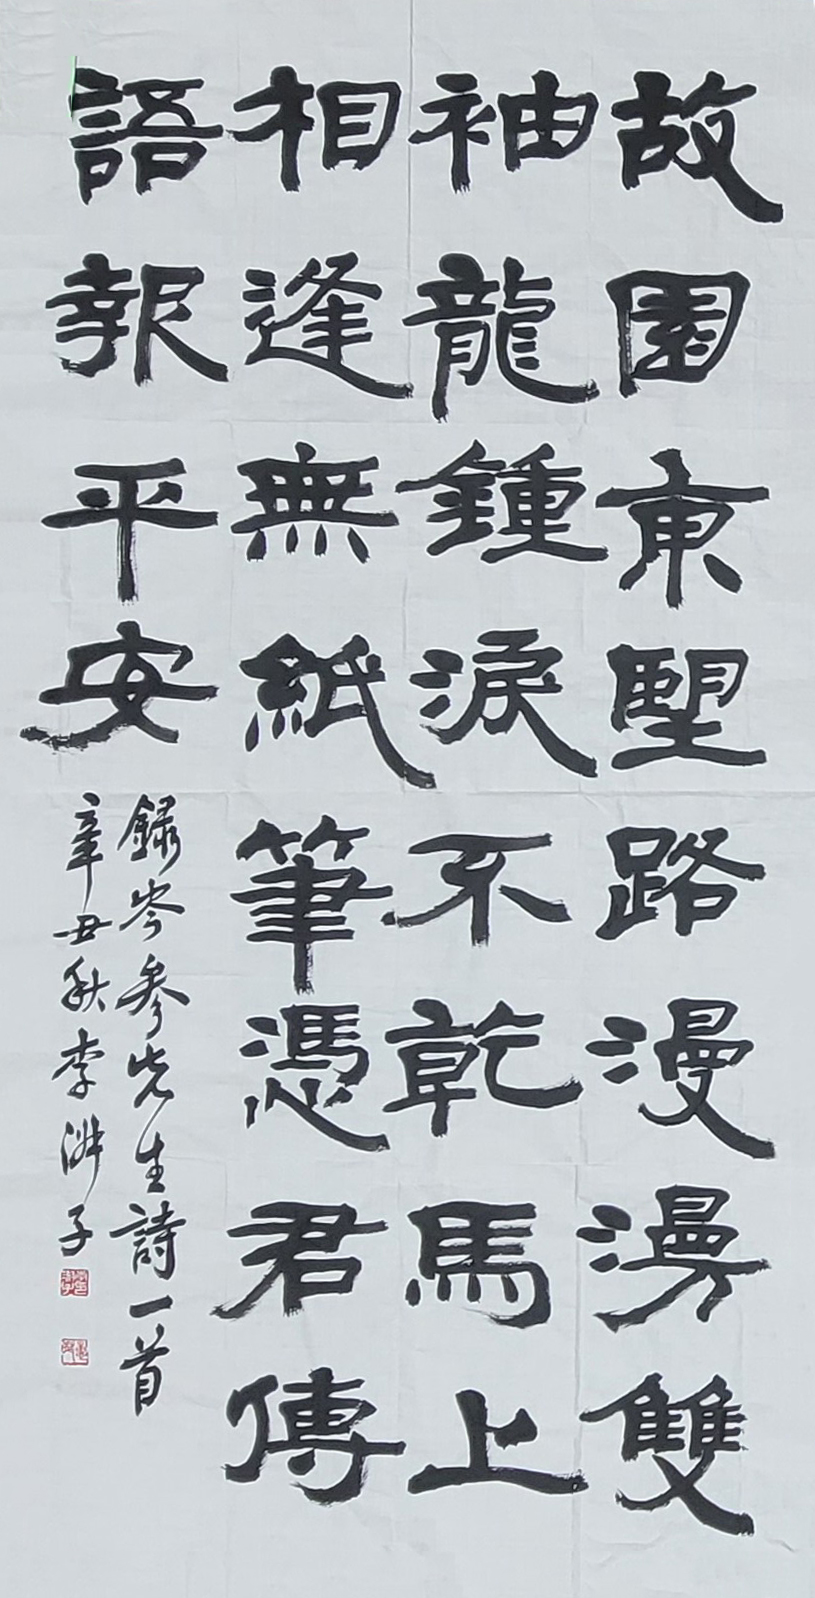 故園東望路漫漫雙
袖龍鍾淚不乾馬上
相逢無紙筆憑君傳
語報平安
錄岑參先生詩一首
辛丑秋李洲子